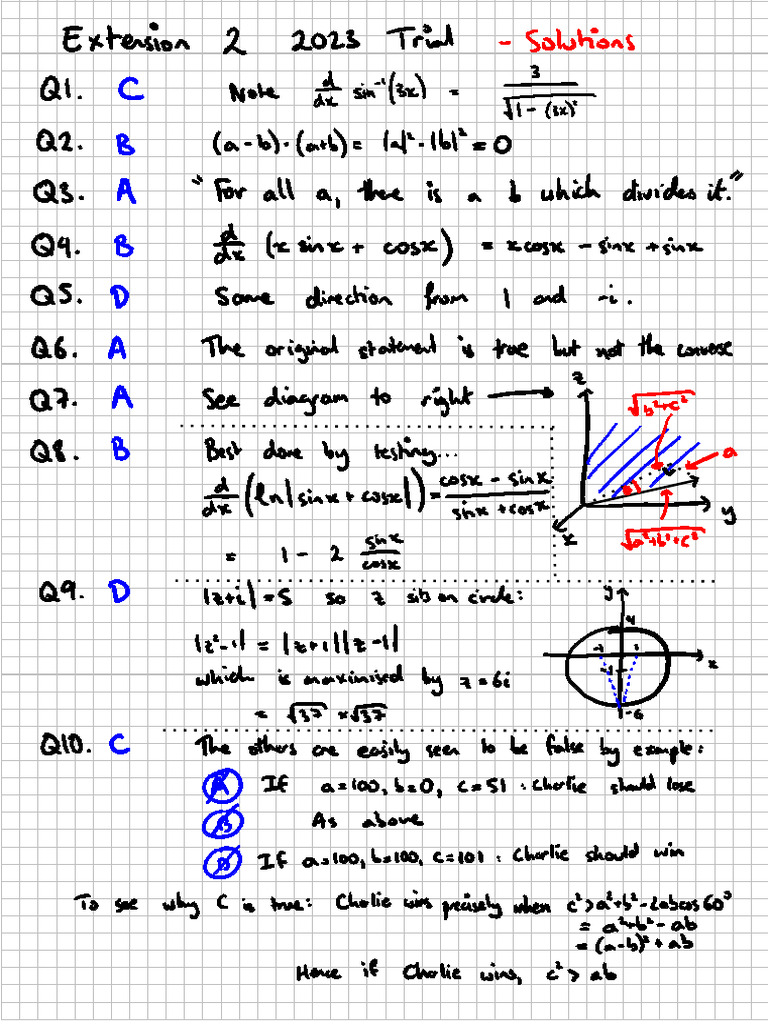 Extension 2 2023 Trial - Solutions
Q1. C Note d/dx sin⁻¹(3x) = 3/√(1-(3x)²)
Q2. B (a-b)·(a+b) = |a|²-|b|² = 0
Q3. A "For all a, there is a b which divides it."
Q4. B d/dx (x sinx + cosx) = xcosx - sinx + sinx
Q5. D Same direction from 1 and -i.
Q6. A The original statement is true but not the converse
Q7. A See diagram to right
z
√(b²+c²)
a
θ
y
√(a²+b²+c²)
x
Q8. B Best done by testing...
d/dx (ln|sinx+cosx|) = (cosx - sinx)/(sinx + cosx)
= 1 - 2 sinx/cosx
Q9. D |z+i| = 5 so z sits on circle:
y
4
-1 1
x
-1
-6
|z²-1| = |z+1||z-1|
which is maximised by z=6i
= √37 × √37
Q10. C The others are easily seen to be false by example:
A If a=100, b=0, c=51 : Charlie should lose
B As above
D If a=100, b=100, c=101 : Charlie should win
To see why C is true: Charlie wins precisely when c²>a²+b²-2abcos60°
= a²+b²-ab
= (a-b)²+ab
Hence if Charlie wins, c²> ab